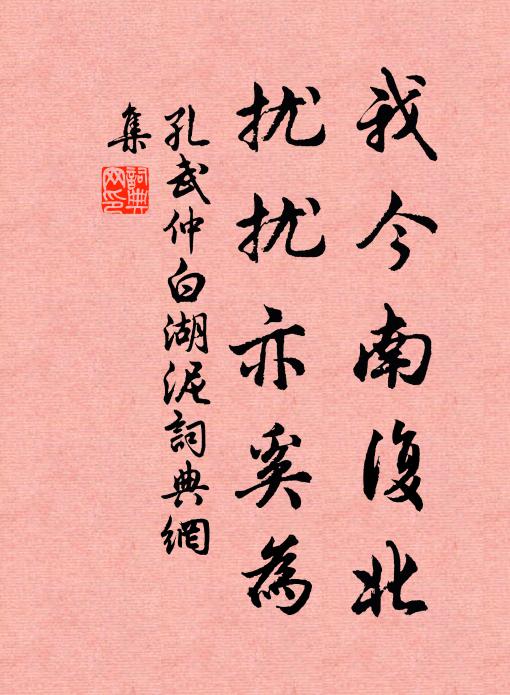 我今南復北
扰扰亦奚為
孔武仲白湖泥詞典網
集
詞典网印